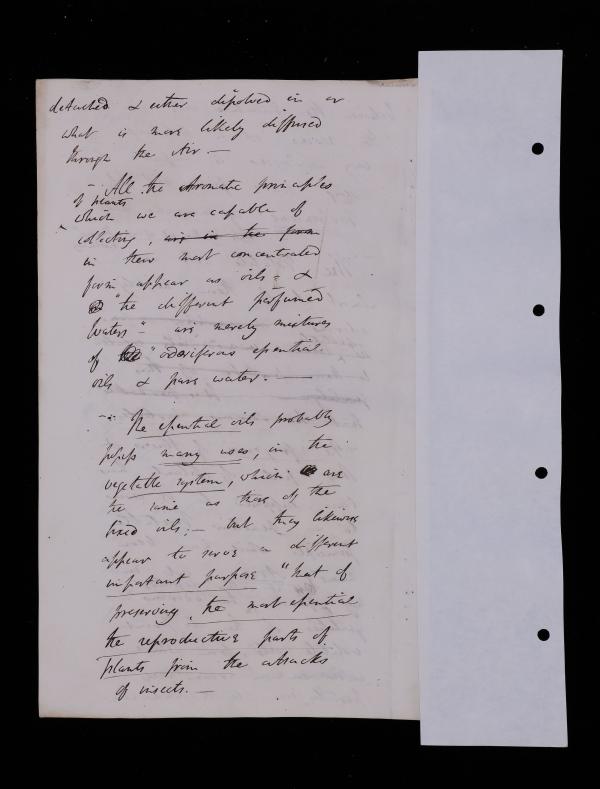 detached & either dissolved in or
what is more likely diffused
through the Air. —
– All the Aromatic principles
of plants
which we are capable of
collecting, are in the form
in their most concentrated
form appear as oils – &
"the different perfumed
Waters" are merely mixtures
of "odoriferous essential
oils & pure water. —
– The essential oils probably
possess many uses, in the
vegetable system, which are
the same as those of the
fixed oils; – but they likewise
appear to serve a different
important purpose "that of
preserving, the most essential
the reproductive parts of
plants from the attacks
of insects. —